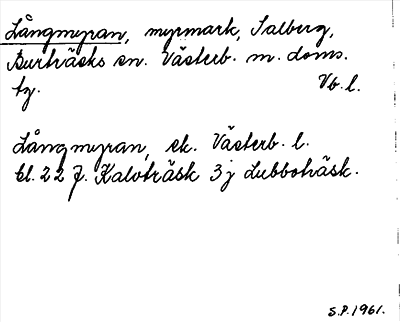 Långmyran, myrmark, Salberg,
Burträsks sn. Västerb. m. doms.
tg. Vb. l.
Långmyran, ek. Västerb. l.
bl. 22 f. Kalvträsk 3 j Lubboträsk.
S.P. 1961.